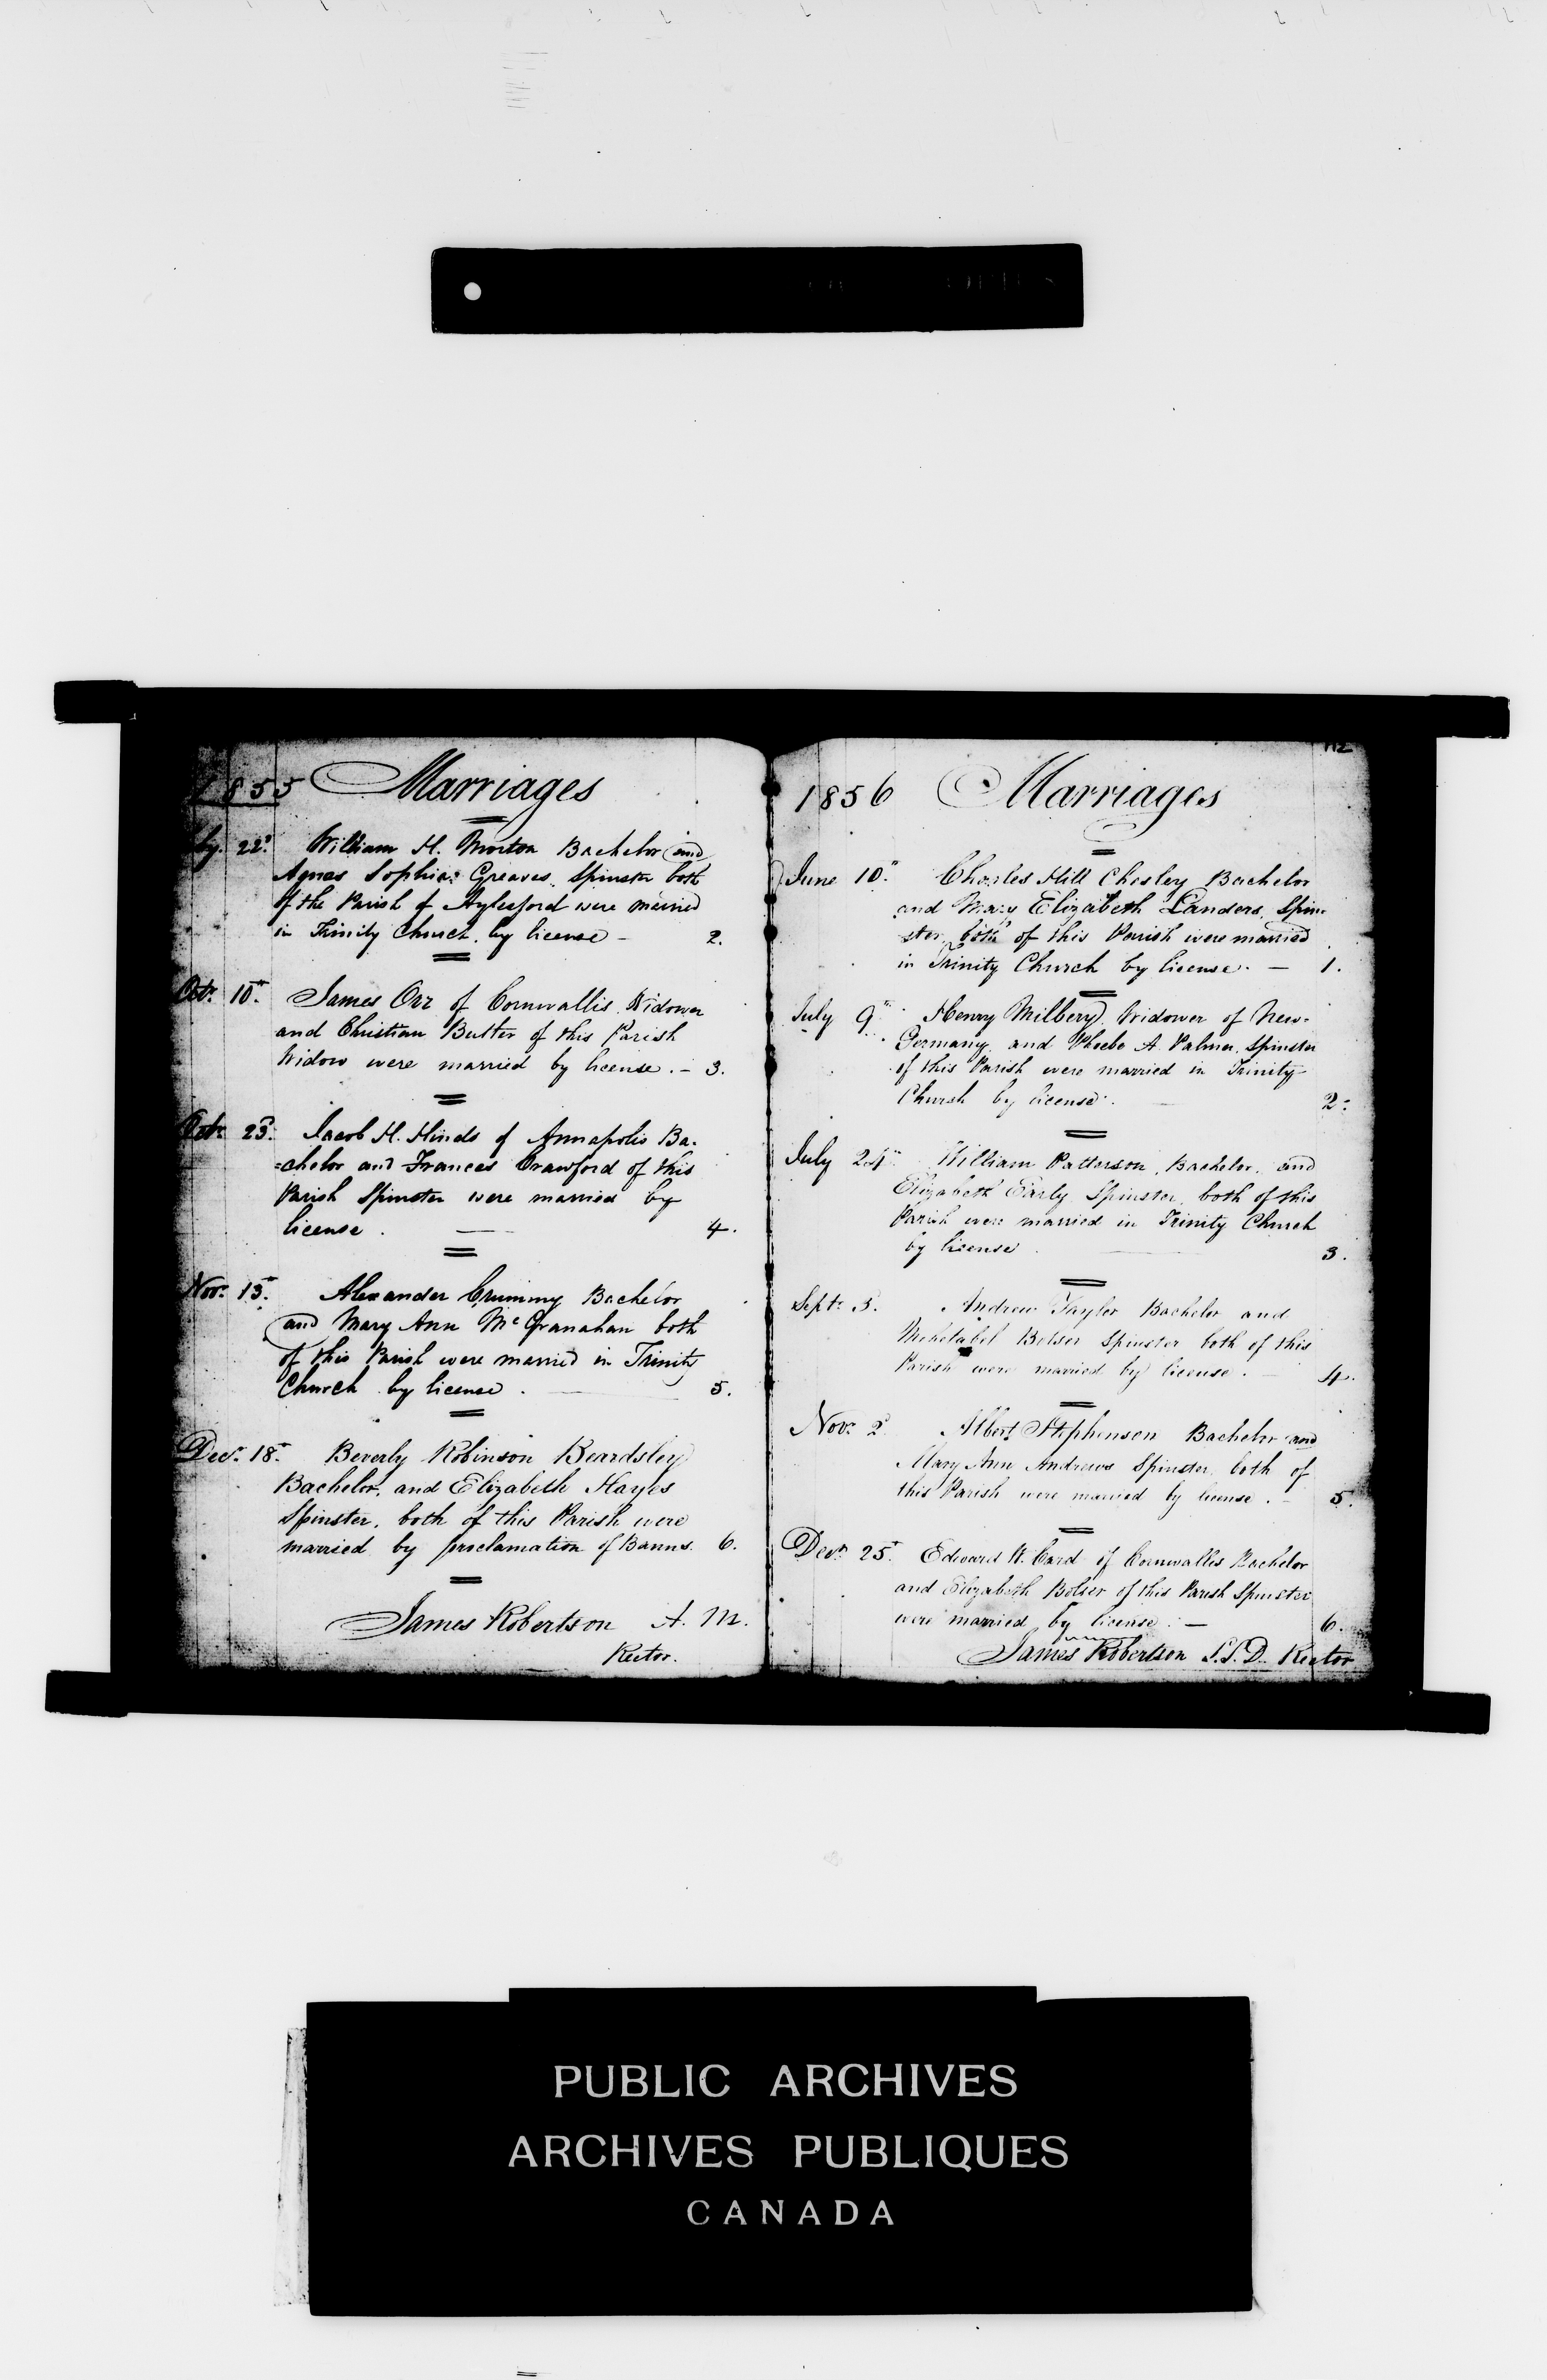 1855 Marriages
22d. William H. Morton Bachelor and
Agnes Sophia Greaves, Spinster both
of the Parish of Aylesford were married
in Trinity Church, by license – 2.
Octr. 10th. James Orr of Cornwallis Widower
and Christian Butler of this Parish
Widow were married by license. – 3.
Octr. 23d. Jacob H. Hinds of Annapolis Ba-
=chelor and Frances Crawford of this
Parish Spinster were married by
license. — 4.
Novr. 15th. Alexander Crummy Bachelor
and Mary Ann McGranahan both
of this Parish were married in Trinity
Church by license. — 5.
Decr. 18th. Beverly Robinson Beardsley
Bachelor, and Elizabeth Hayes
Spinster, both of this Parish were
married by proclamation of Banns. 6.
James Robertson A. M.
Rector.
112
1856 Marriages
June 10th. Charles Hill Chesley Bachelor
and Mary Elizabeth Landers, Spin-
ster, both of this Parish were married
in Trinity Church by license. — 1.
July 9th. Henry Milbery Widower of New-
Germany and Phoebe A. Palmer, Spinster
of this Parish were married in Trinity
Church by license. — 2.
July 24th. William Patterson, Bachelor, and
Elizabeth Early Spinster, both of this
Parish were married in Trinity Church
by license. — 3.
Septr. 3. Andrew Taylor Bachelor and
Mehetabel Bolser Spinster both of this
Parish were married by license. — 4.
Novr. 2d Albert Stephenson Bachelor and
Mary Ann Andrews Spinster both of
this Parish were married by license. – 5.
Decr. 25th. Edward W. Card of Cornwallis Bachelor
and Elizabeth Bolser of this Parish Spinster
were married by license. — 6.
James Robertson L.L.D. Rector
PUBLIC ARCHIVES
ARCHIVES PUBLIQUES
CANADA